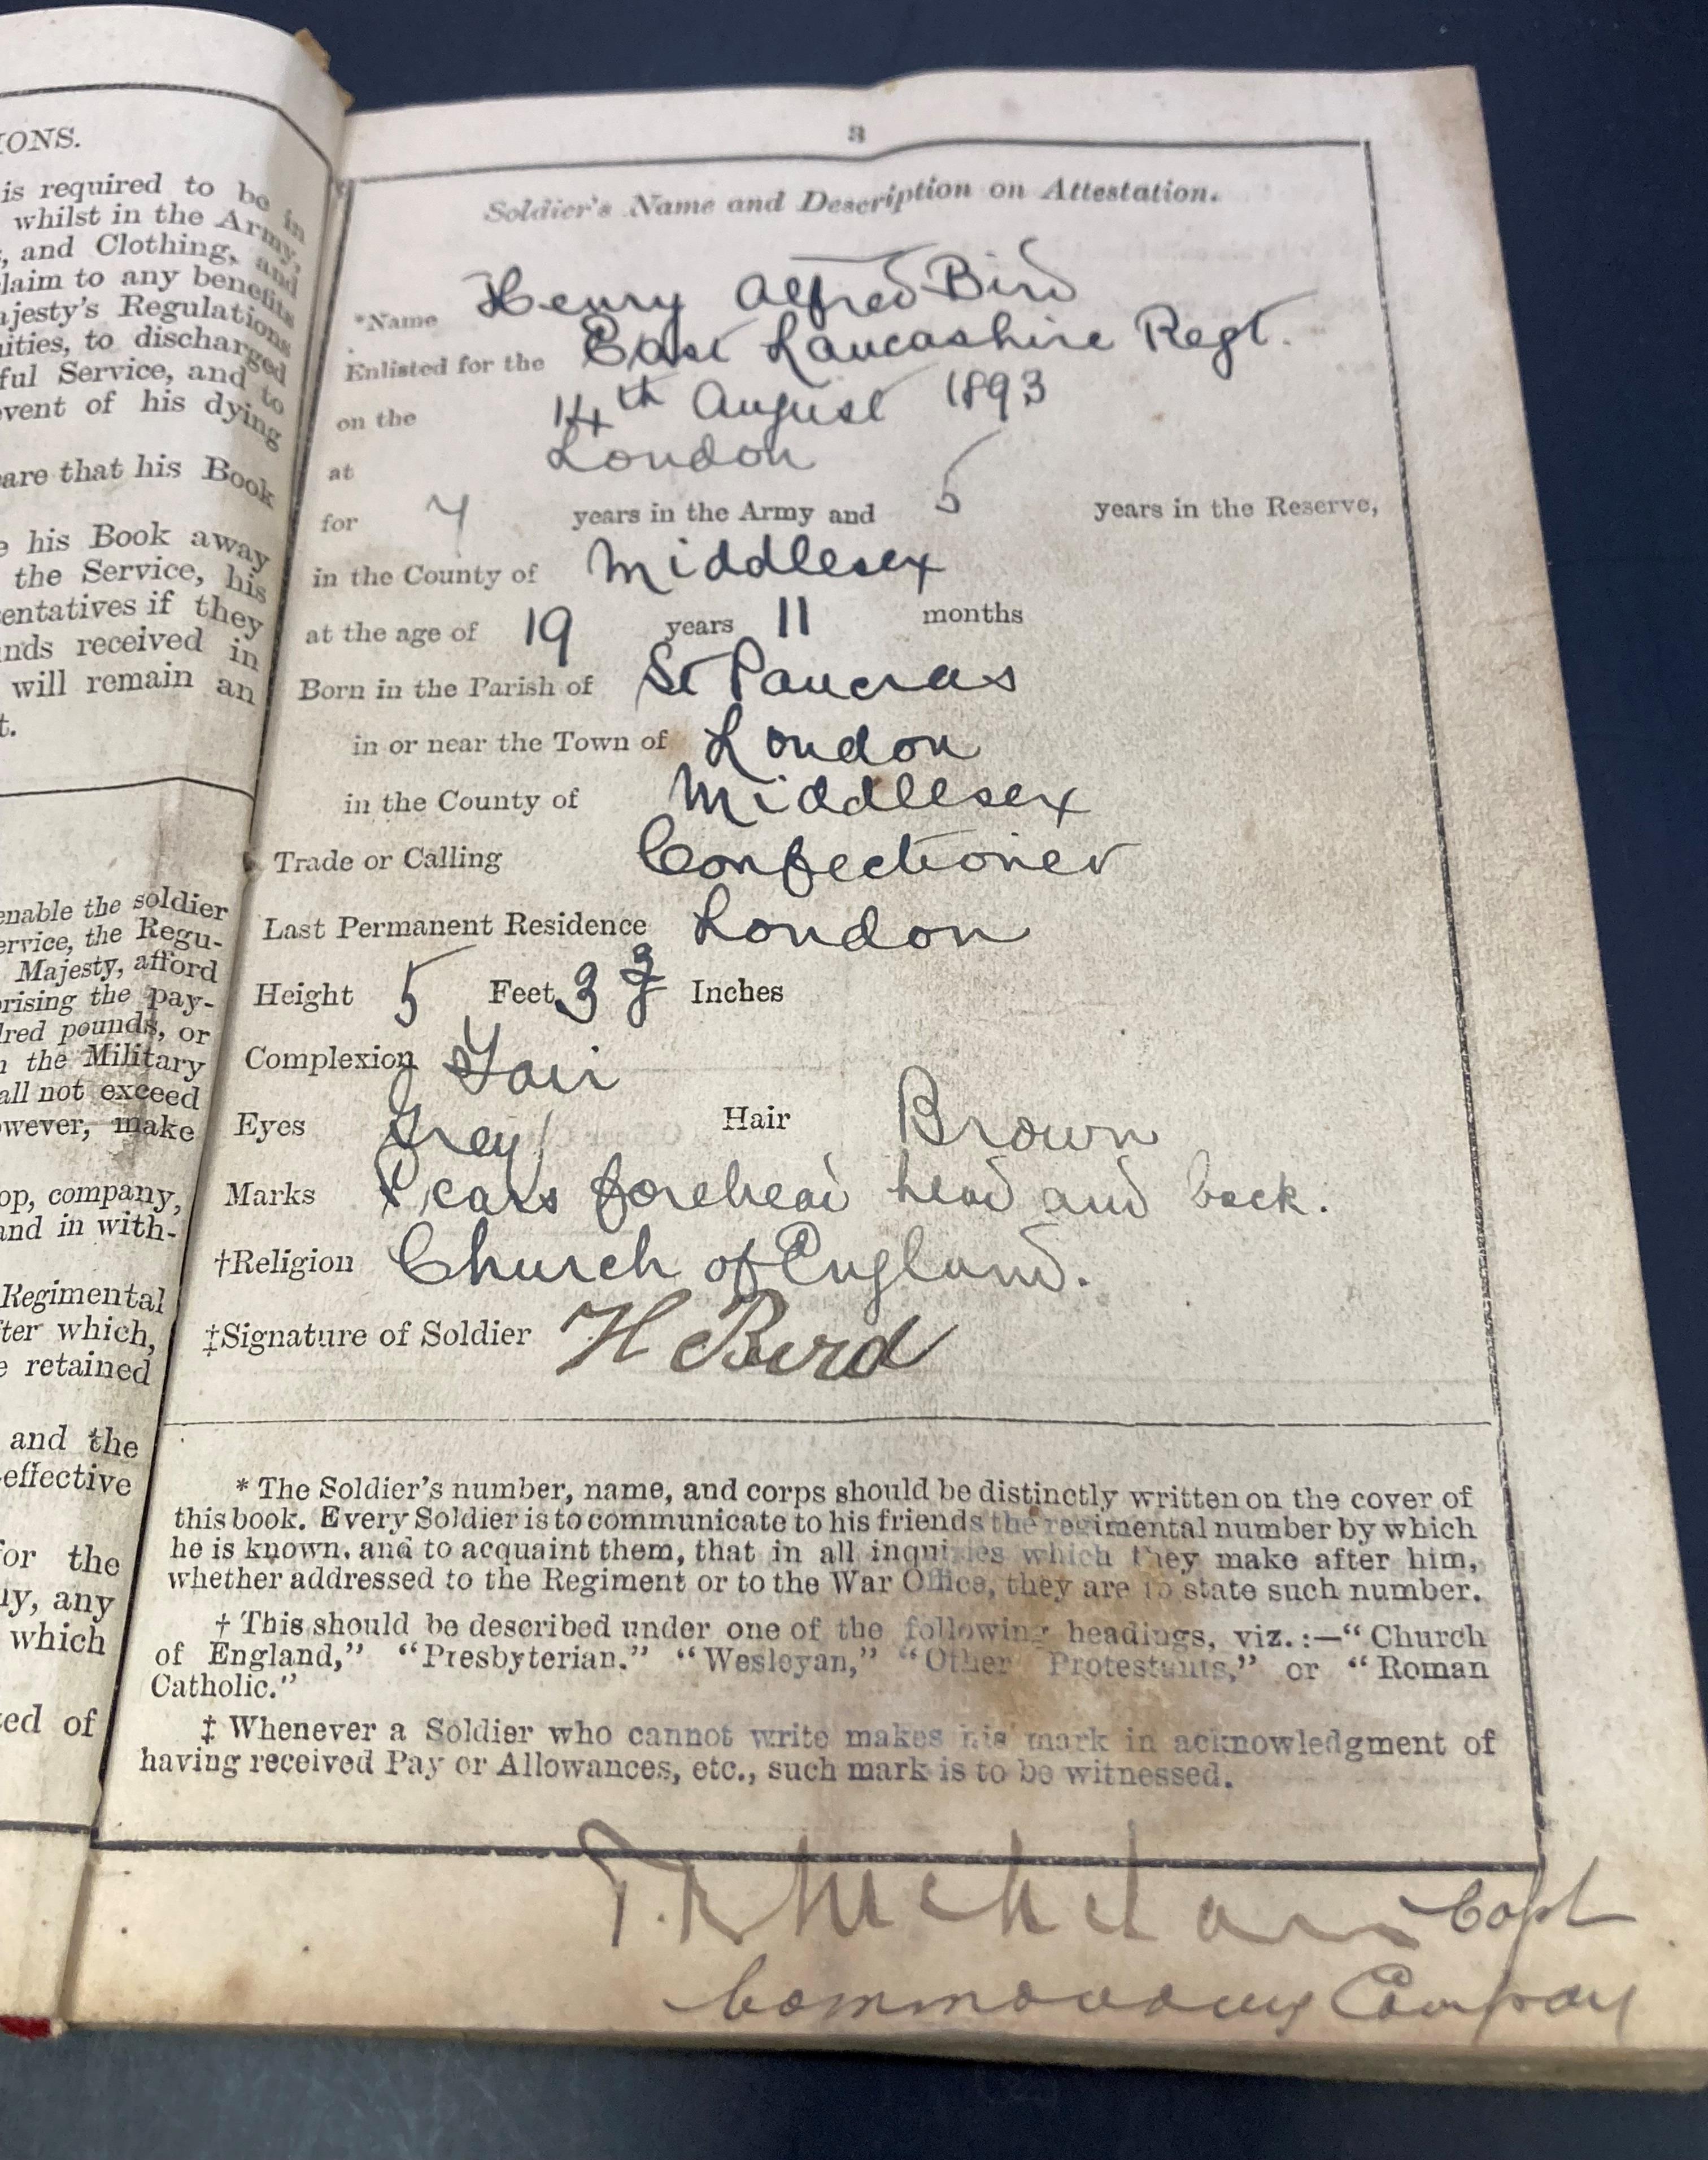 IONS.
is required to be in
whilst in the Army,
, and Clothing, and
laim to any benefits
ajesty's Regulations
uities, to discharged
ful Service, and to
event of his dying
are that his Book
e his Book away
the Service, his
entatives if they
nds received in
will remain an
t.
enable the soldier
ervice, the Regu-
Majesty, afford
prising the pay-
dred pounds, or
n the Military
all not exceed
owever, make
op, company,
and in with-
Regimental
fter which,
e retained
and the
-effective
for the
ny, any
which
ted of
3
Soldier's Name and Description on Attestation.
*Name Henry Alfred Bird
Enlisted for the East Lancashire Regt.
on the 14th August 1893
at London
for 7 years in the Army and 5 years in the Reserve,
in the County of Middlesex
at the age of 19 years 11 months
Born in the Parish of St Pancras
in or near the Town of London
in the County of Middlesex
Trade or Calling Confectioner
Last Permanent Residence London
Height 5 Feet 3 Inches
Complexion Fair
Eyes Grey Hair Brown
Marks Scars forehead head and back.
†Religion Church of England.
‡Signature of Soldier H Bird
* The Soldier's number, name, and corps should be distinctly written on the cover of
this book. Every Soldier is to communicate to his friends the regimental number by which
he is known, and to acquaint them, that in all inquiries which they make after him,
whether addressed to the Regiment or to the War Office, they are to state such number.
† This should be described under one of the following headings, viz.:—"Church
of England," "Presbyterian." "Wesleyan," "Other Protestants," or "Roman
Catholic."
‡ Whenever a Soldier who cannot write makes his mark in acknowledgment of
having received Pay or Allowances, etc., such mark is to be witnessed.
Capt
Commanding Company